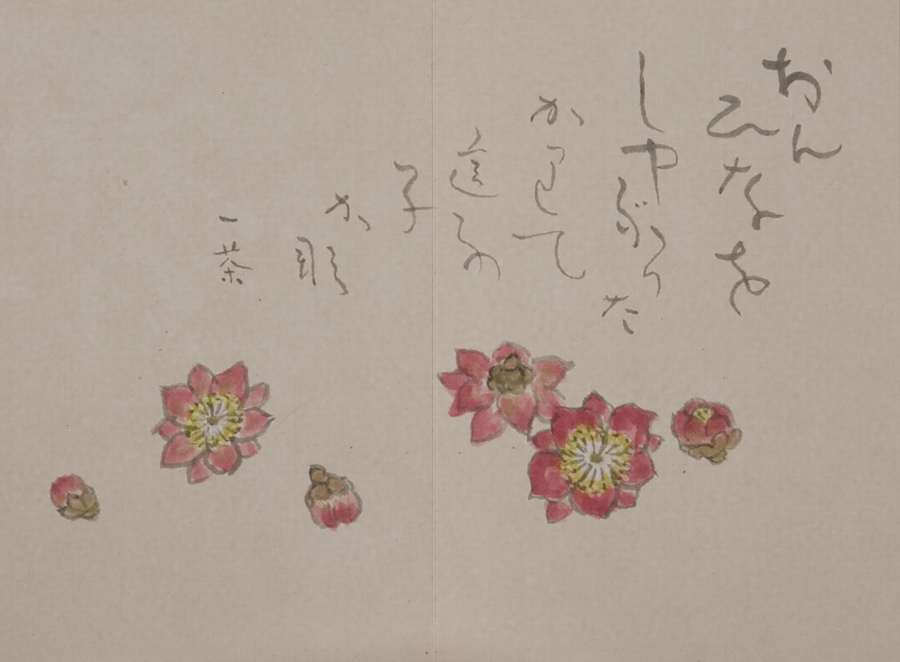 おん
ひなを
しやぶりた
かりて
這ふ
子
か
那
一茶